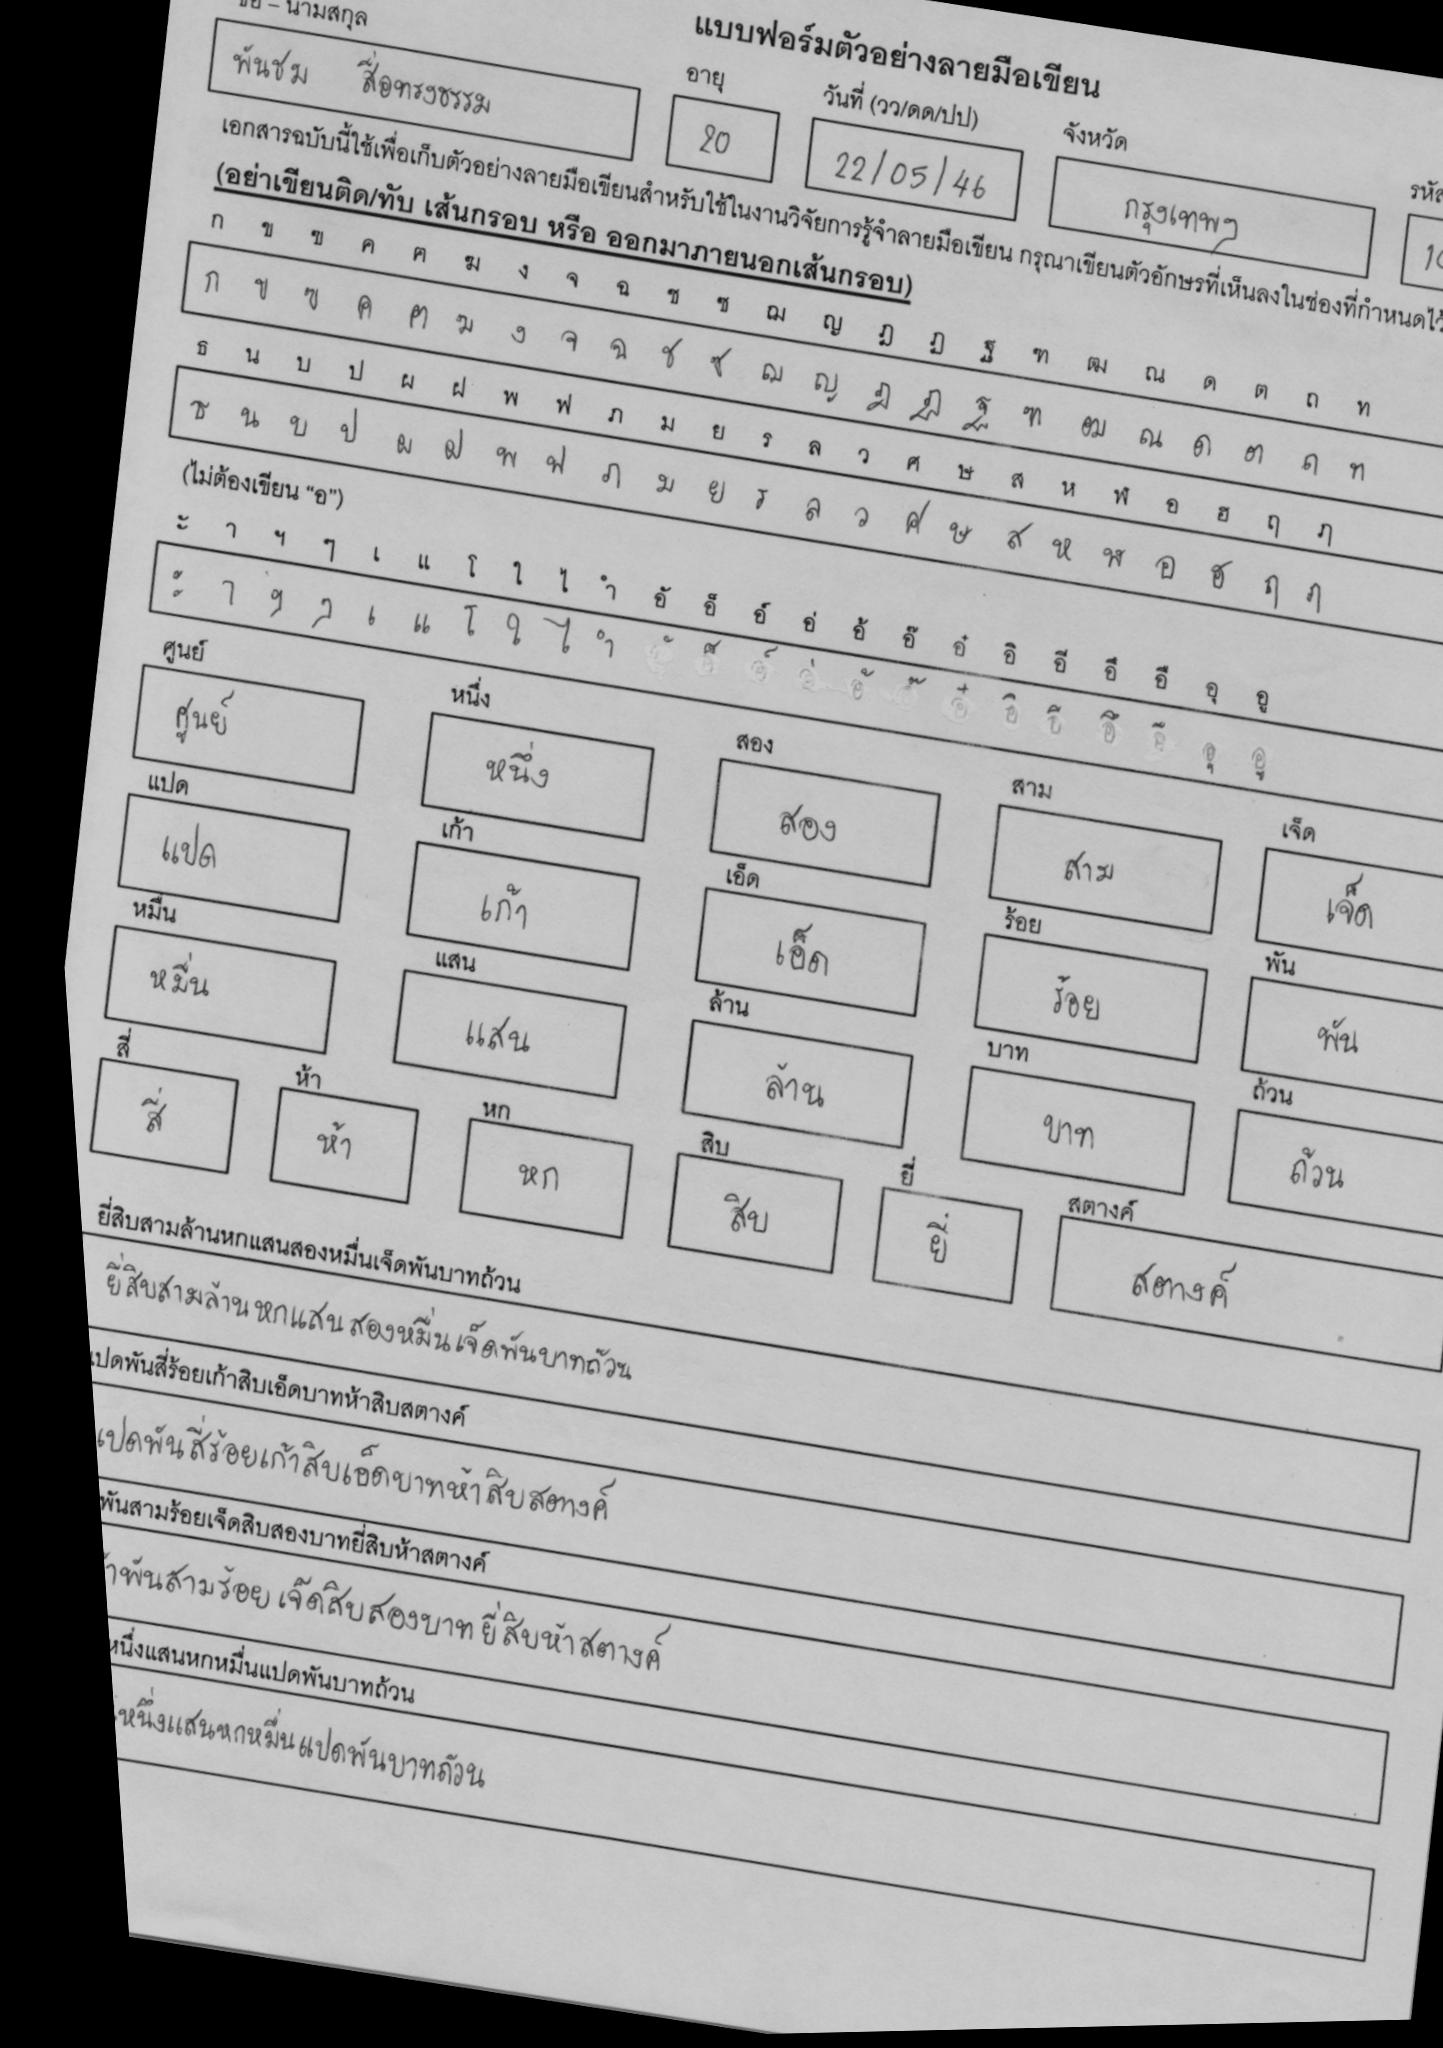 แบบฟอร์มตัวอย่างลายมือเขียน
ชื่อ – นามสกุล อายุ วันที่ (วว/ดด/ปป) จังหวัด
พันชม สื่อทรงธรรม 20 22/05/46 กรุงเทพๆ
เอกสารฉบับนี้ใช้เพื่อเก็บตัวอย่างลายมือเขียนสำหรับใช้ในงานวิจัยการรู้จำลายมือเขียน กรุณาเขียนตัวอักษรที่เห็นลงในช่องที่กำหนดไว้
(อย่าเขียนติด/ทับ เส้นกรอบ หรือ ออกมาภายนอกเส้นกรอบ)
ก ข ฃ ค ฅ ฆ ง จ ฉ ช ซ ฌ ญ ฎ ฏ ฐ ฑ ฒ ณ ด ต ถ ท
ก ข ฃ ค ฅ ฆ ง จ ฉ ช ซ ฌ ญ ฎ ฏ ฐ ฑ ฒ ณ ด ต ถ ท
ธ น บ ป ผ ฝ พ ฟ ภ ม ย ร ล ว ศ ษ ส ห ฬ อ ฮ ฤ ฦ
ธ น บ ป ผ ฝ พ ฟ ภ ม ย ร ล ว ศ ษ ส ห ฬ อ ฮ ฤ ฦ
(ไม่ต้องเขียน “อ”)
ะ า ฯ ๆ เ แ โ ใ ไ ำ อั อ็ อ์ อ่ อ้ อ๊ อ๋ อิ อี อึ อื อุ อู
ะ า ฯ ๆ เ แ โ ใ ไ ำ อั อ็ อ์ อ่ อ้ อ๊ อ๋ อิ อี อึ อื อุ อู
ศูนย์ หนึ่ง สอง สาม เจ็ด
ศูนย์ หนึ่ง สอง สาม เจ็ด
แปด เก้า เอ็ด ร้อย พัน
แปด เก้า เอ็ด ร้อย พัน
หมื่น แสน ล้าน บาท ถ้วน
หมื่น แสน ล้าน บาท ถ้วน
สี่ ห้า หก สิบ ยี่ สตางค์
สี่ ห้า หก สิบ ยี่ สตางค์
ยี่สิบสามล้านหกแสนสองหมื่นเจ็ดพันบาทถ้วน
ยี่สิบสามล้านหกแสนสองหมื่นเจ็ดพันบาทถ้วน
แปดพันสี่ร้อยเก้าสิบเอ็ดบาทห้าสิบสตางค์
แปดพันสี่ร้อยเก้าสิบเอ็ดบาทห้าสิบสตางค์
พันสามร้อยเจ็ดสิบสองบาทยี่สิบห้าสตางค์
พันสามร้อยเจ็ดสิบสองบาทยี่สิบห้าสตางค์
หนึ่งแสนหกหมื่นแปดพันบาทถ้วน
หนึ่งแสนหกหมื่นแปดพันบาทถ้วน